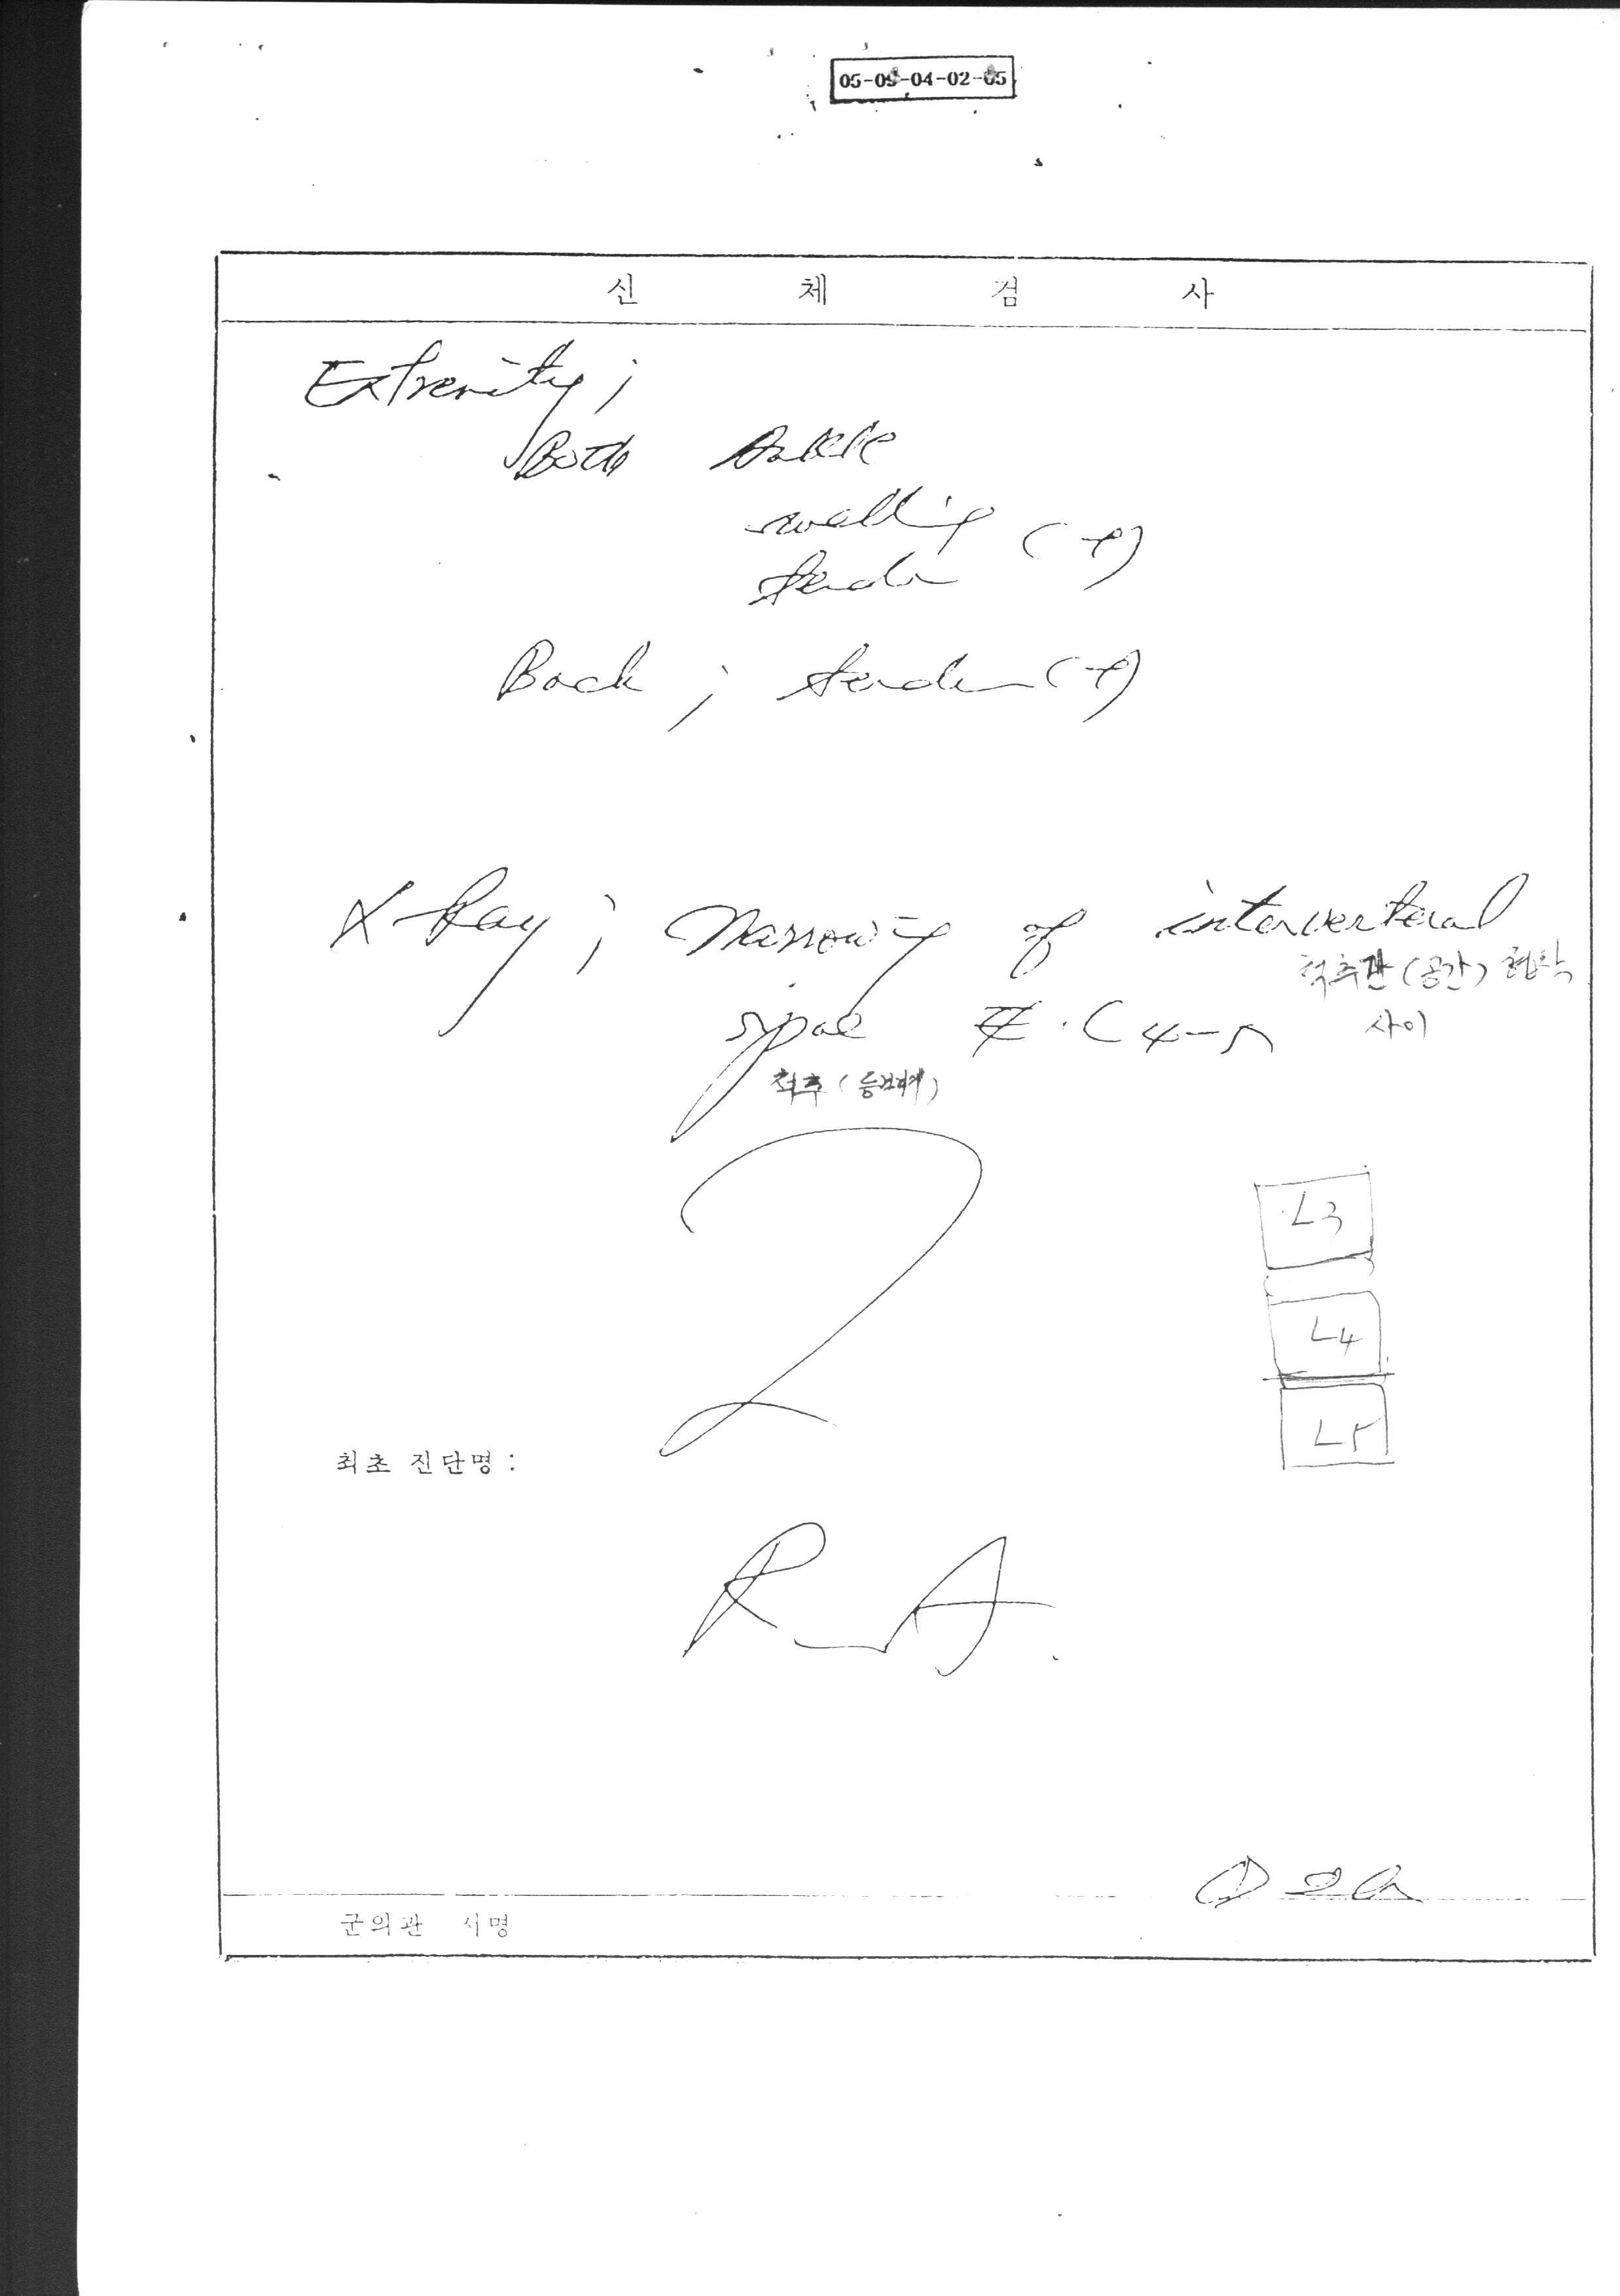 05-09-04-02-05
신 체 검 사
Extremity ;
Both Ankle
swelling (+)
tender
Back ; tender (+)
X-Ray ; Narrowing of intervertebral
척추관 (공간) 협착
space # . L 4-5
사이
척추 (등뼈)
L3
L4
L5
최초 진단명 :
R A .
군의관 서명